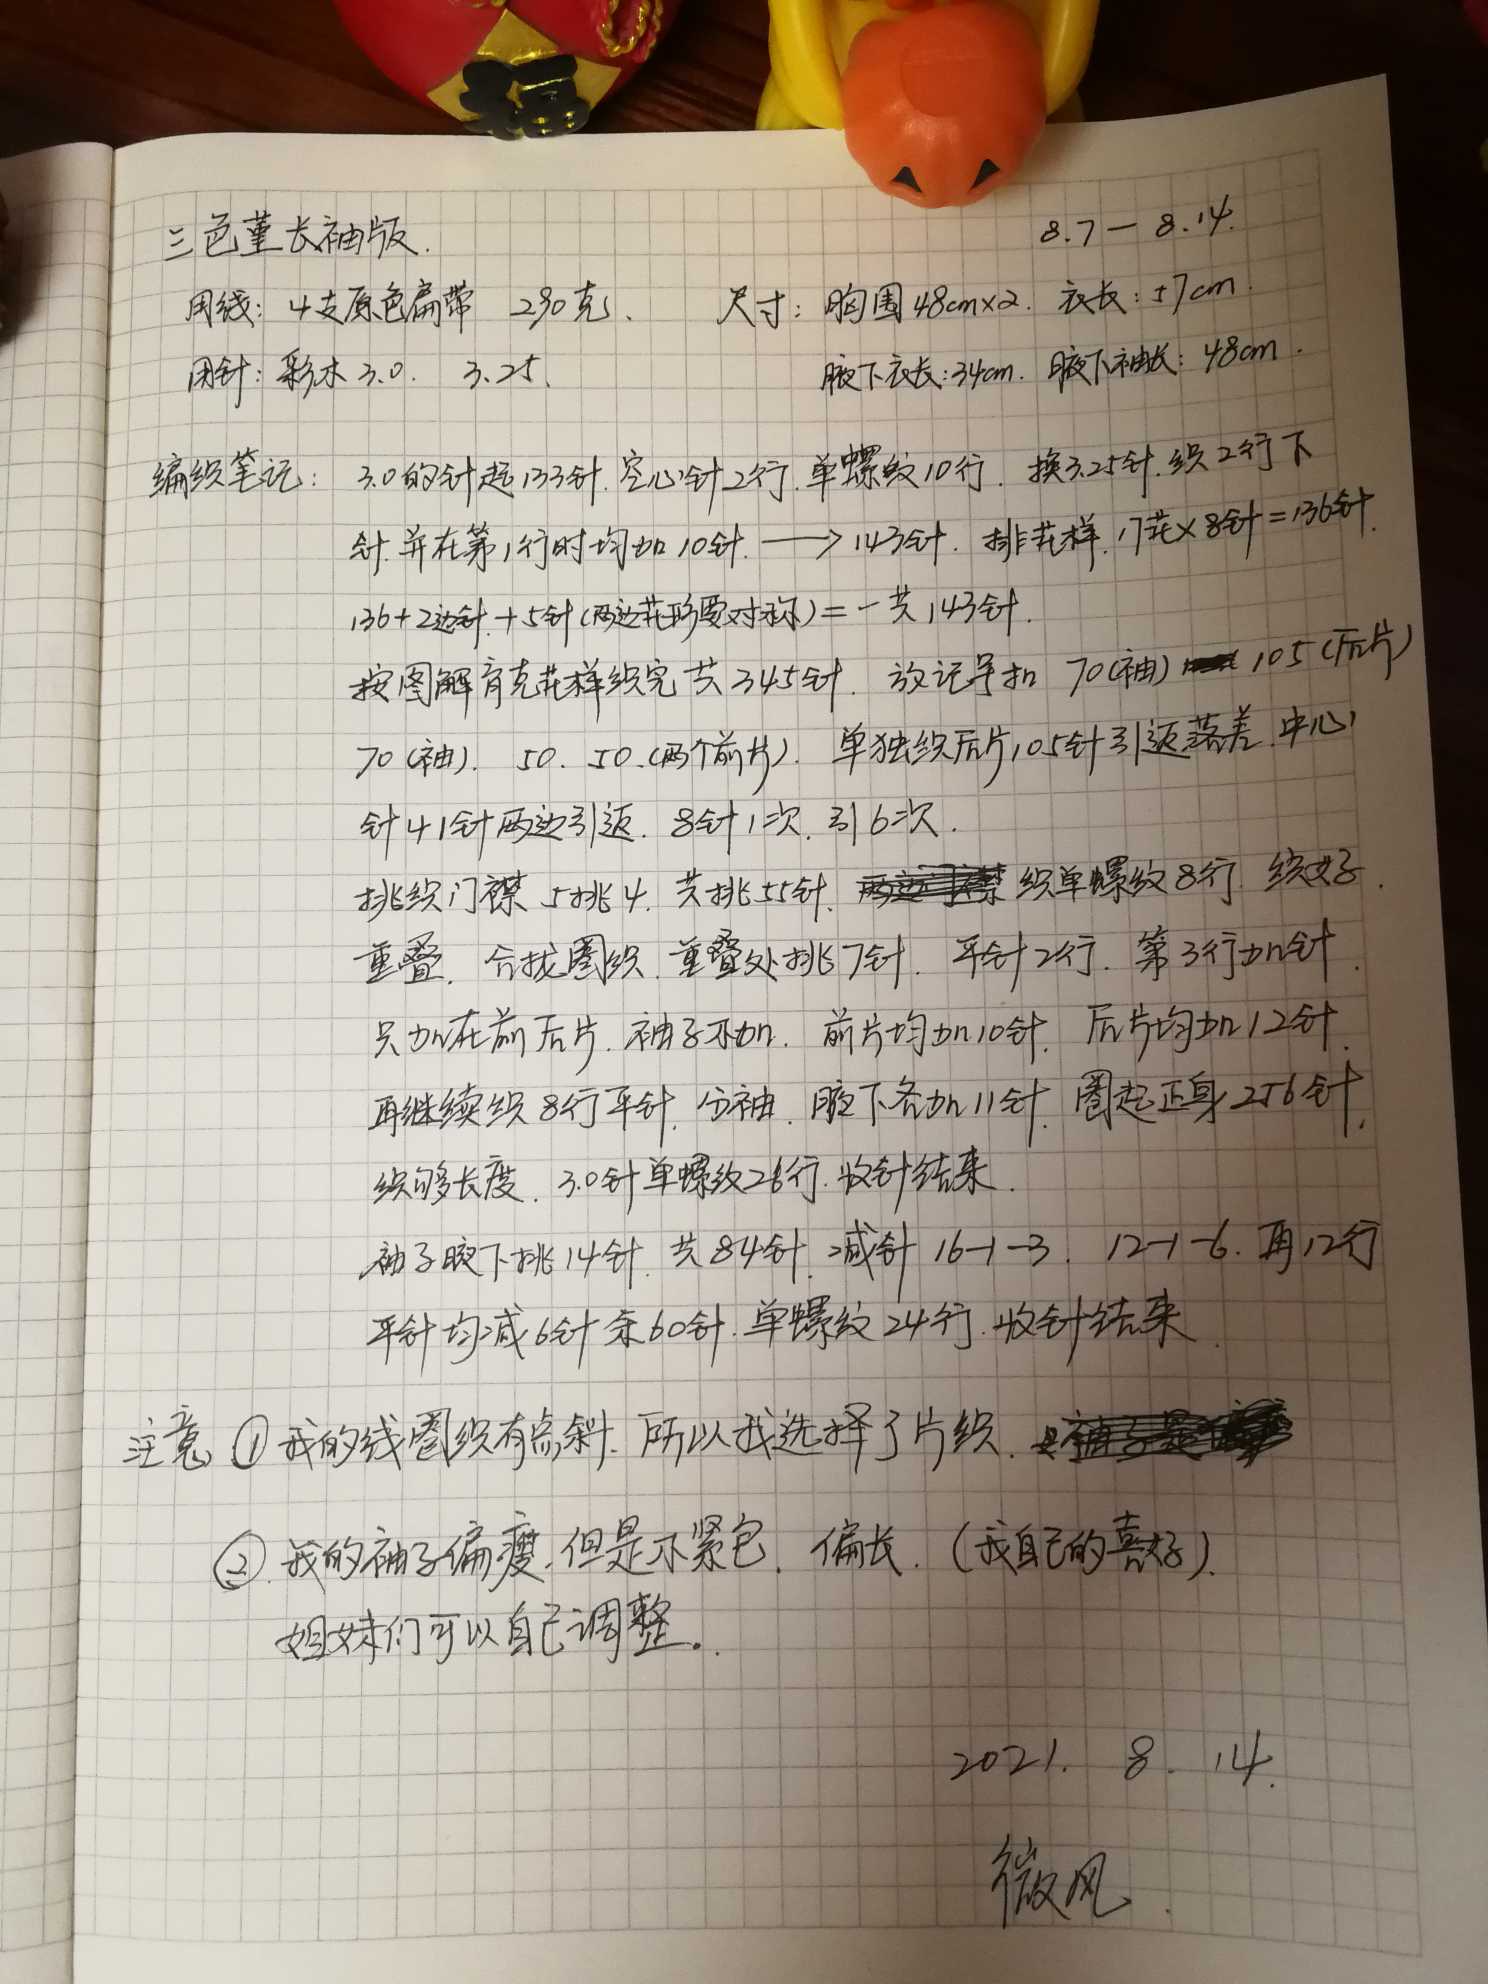 福
三色堇长袖版. 8.7－8.14.
用线: 4支原色扁带 290克. 尺寸: 胸围48cm×2. 衣长: 57cm.
用针: 彩木3.0. 3.25. 腋下衣长:34cm. 腋下袖长: 48cm.
编织笔记: 3.0的针起133针. 空心针2行. 单螺纹10行. 换3.25针. 织2行下
针. 并在第1行时均加10针. → 143针. 排花样. 17花×8针=136针.
136+2边针.+5针(两边花形要对称)=一共143针.
按图解育克花样织完共345针. 放记号扣 70(袖) 105(后片)
70(袖). 50. 50.(两个前片). 单独织后片105针引返落差. 中心
针41针两边引返. 8针1次. 引6次.
挑织门襟 5挑4. 共挑55针. 织单螺纹8行. 织好
重叠. 合拢圈织. 重叠处挑7针. 平针2行. 第3行加针.
只加在前后片. 袖子不加. 前片均加10针. 后片均加12针.
再继续织8行平针. 分袖. 腋下各加11针. 圈起正身256针.
织够长度. 3.0针单螺纹26行. 收针结束.
袖子腋下挑14针. 共84针. 减针 16-1-3. 12-1-6. 再12行
平针均减6针余60针. 单螺纹24行. 收针结束.
注意 ① 我的线圈织有点斜. 所以我选择了片织.
②. 我的袖子偏瘦. 但是不紧包. 偏长. (我自己的喜好).
姐妹们可以自己调整.
2021. 8. 14.
微风.